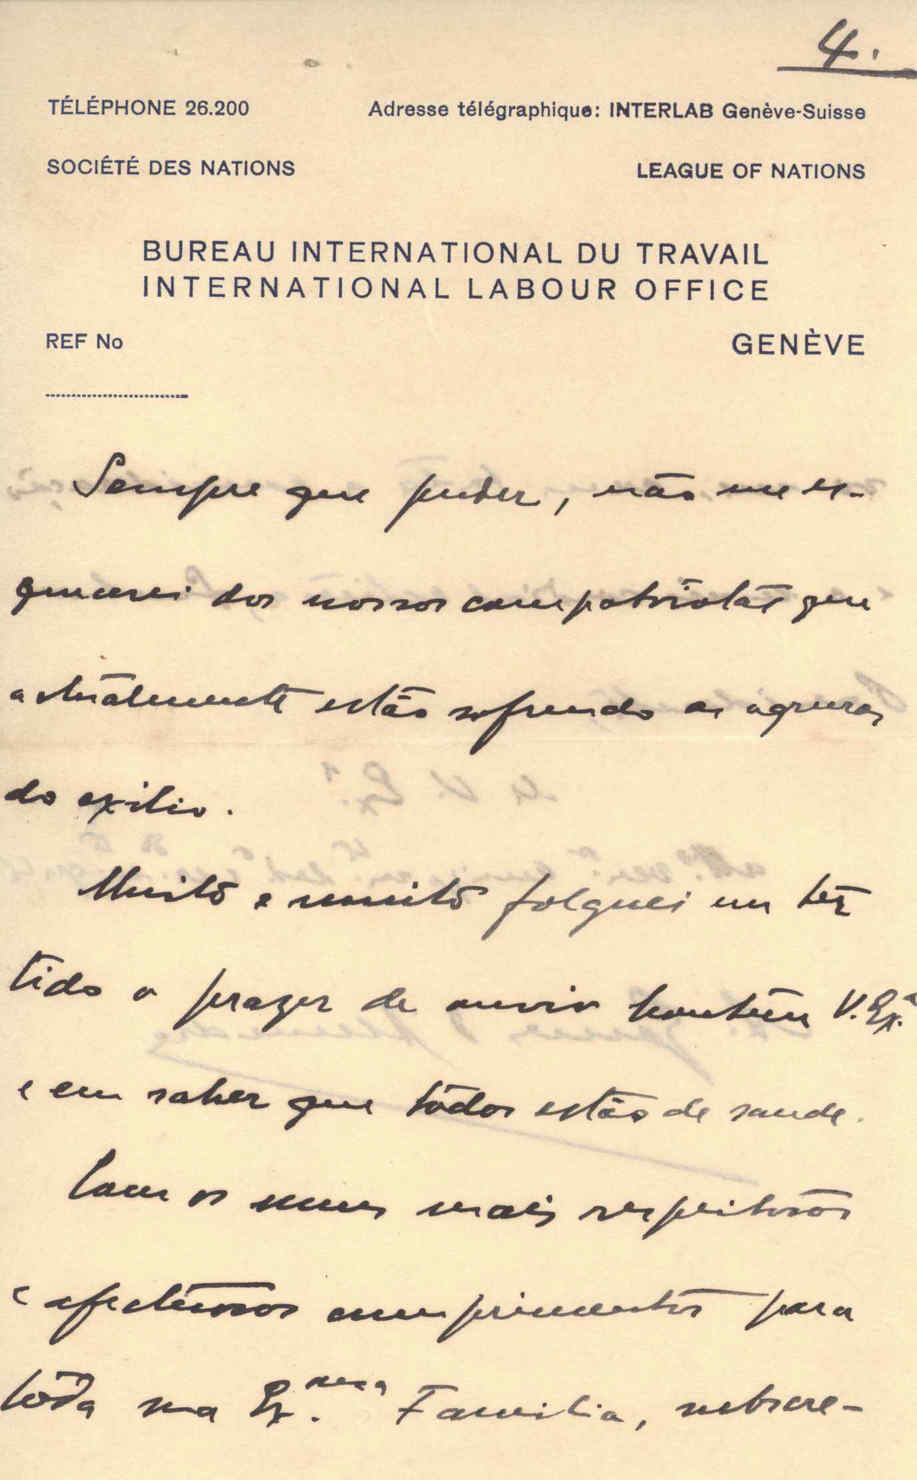 4.
TÉLÉPHONE 26.200 Adresse télégraphique: INTERLAB Genève-Suisse
SOCIÉTÉ DES NATIONS LEAGUE OF NATIONS
BUREAU INTERNATIONAL DU TRAVAIL
INTERNATIONAL LABOUR OFFICE
REF No GENÈVE
Sempre que puder, não me es-
quecerei dos nossos compatriotas que
actualmente estão sofrendo as agruras
do exilio.
Muito e muito folguei em ter
tido o prazer de ouvir hontem V. Ex.ª
e em saber que todos estão de saude.
Com os meus mais respeitosos
e afectuosos cumprimentos para
tôda sua Ex.ma Familia, subscre-